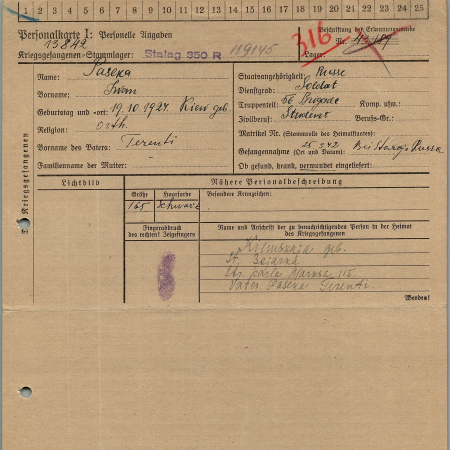 1 2 3 4 5 6 7 8 9 10 11 12 13 14 15 16 17 18 19 20 21 22 23 24 25
Personalkarte I: Personelle Angaben
13842
Kriegsgefangenen-Stammlager: Stalag 350 R 119145
316
Beschriftung der Erkennungsmarke
Nr.
Lager:
Name: Paseka
Vorname: Iwan
Geburtstag und -ort: 19.10.1924. Kiew geb.
Religion: orth.
Vorname des Vaters: Terenti
Familienname der Mutter: -
Staatsangehörigkeit: Russe
Dienstgrad: Soldat
Truppenteil: 56 Brigade Komp. usw.:
Zivilberuf: Student Berufs-Gr.:
Matrikel Nr. (Stammrolle des Heimatstaates):
Gefangennahme (Ort und Datum): 25.3.42 Bei Staraja Russa
Ob gesund, krank, verwundet eingeliefert:
Kriegsgefangenen
Lichtbild
Nähere Personalbeschreibung
Größe Haarfarbe Besondere Kennzeichen:
165 schwarz
Fingerabdruck
des rechten! Zeigefingers
Name und Anschrift der zu benachrichtigenden Person in der Heimat
des Kriegsgefangenen
geb.
St.
Str. Karla Marksa 115.
Vater Paseka Terenti.
Wenden!